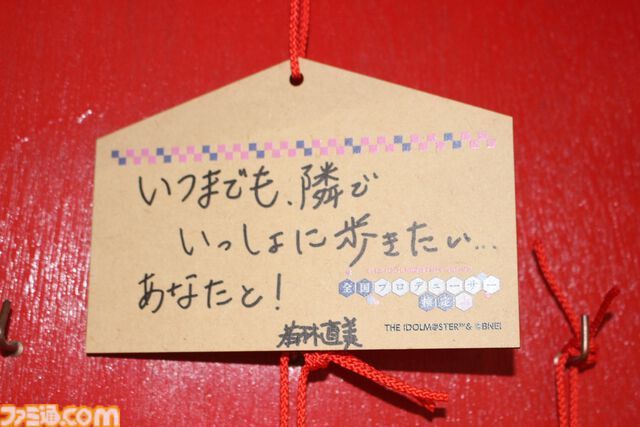 いつまでも、隣で
いっしょに歩きたい…
あなたと!
全国プロデューサー
検定
THE IDOLM@STER™& ©BNEI
若林直美
ファミ通.com